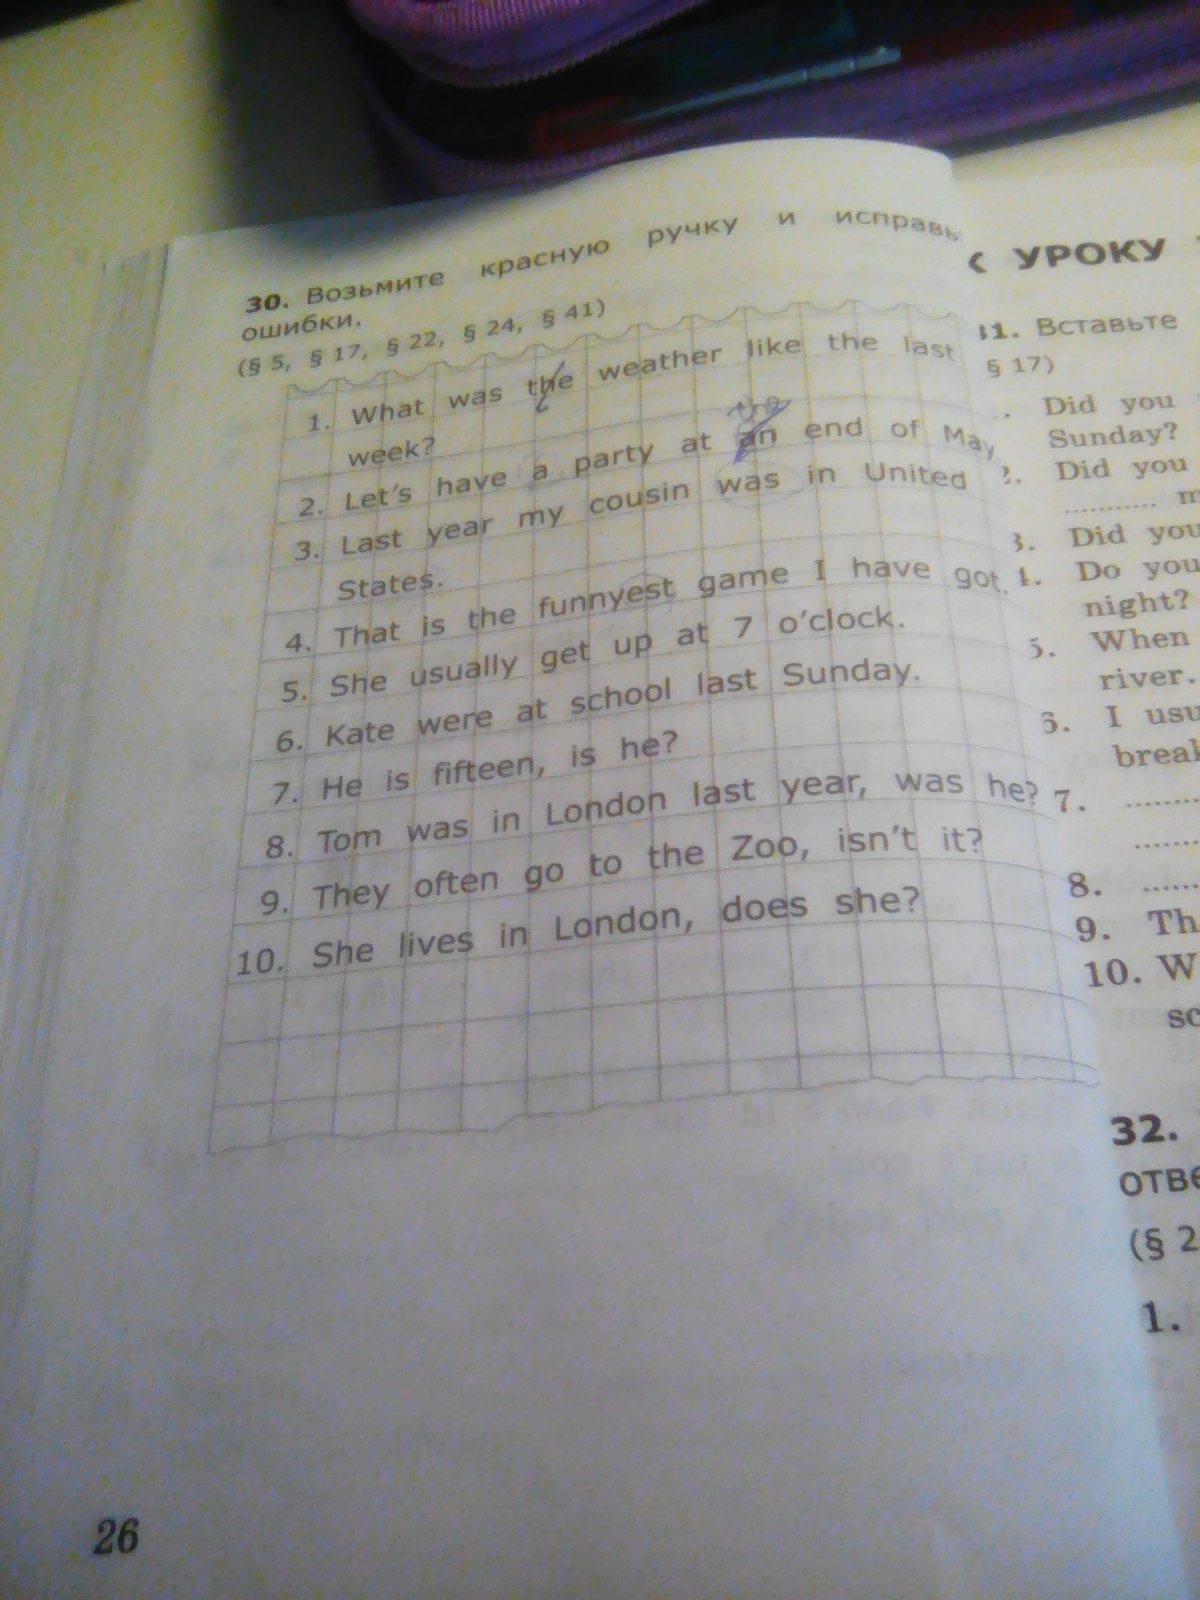 30. Возьмите красную ручку и исправь
ошибки.
(§ 5, § 17, § 22, § 24, § 41)
1. What was the weather like the last
week?
the
2. Let's have a party at an end of May
3. Last year my cousin was in United
States.
4. That is the funnyest game I have got.
5. She usually get up at 7 o'clock.
6. Kate were at school last Sunday.
7. He is fifteen, is he?
8. Tom was in London last year, was he?
9. They often go to the Zoo, isn't it?
10. She lives in London, does she?
26
К УРОКУ
31. Вставьте
§ 17)
Did you
Sunday?
2. Did you
........... m
3. Did you
4. Do you
night?
5. When
river.
6. I usu
break
7. ........
.......
8. ......
9. Th
10. W
sc
32.
отве
(§ 2
1.